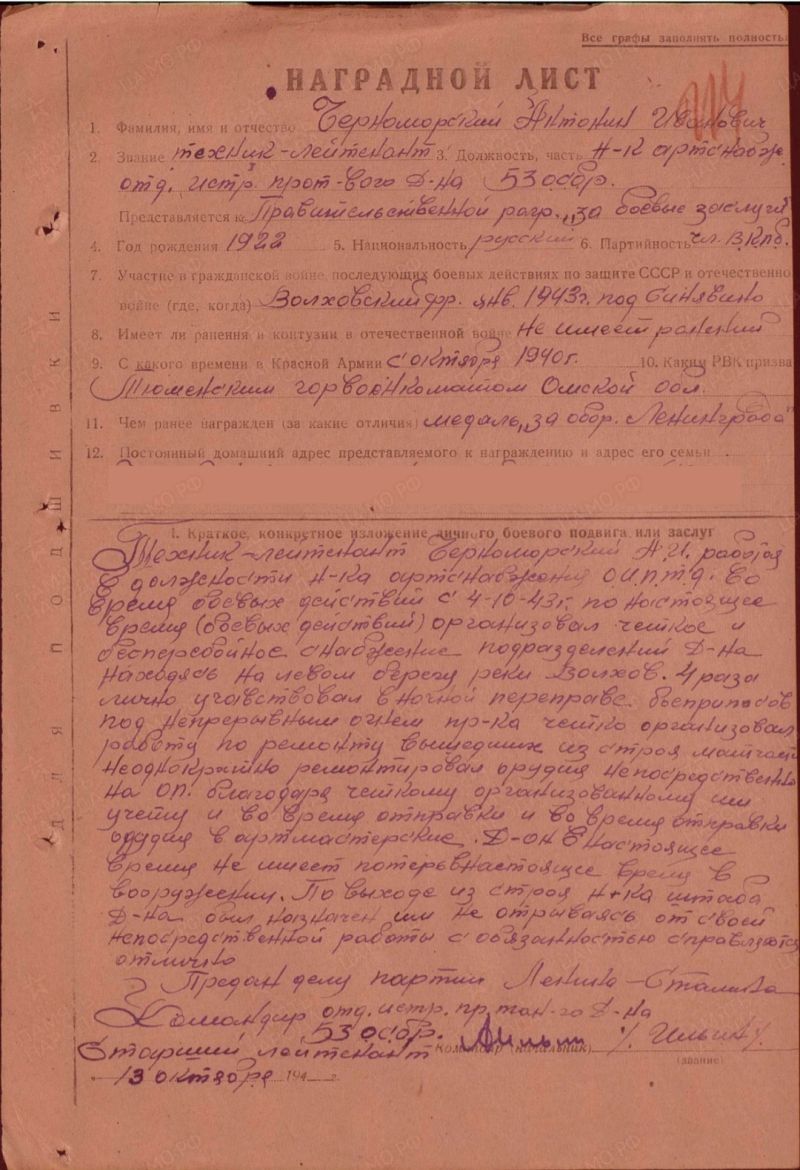 Все графы заполнять полность
НАГРАДНОЙ ЛИСТ
1. Фамилия, имя и отчество Черноморский Антонин Иванович
2. Звание техник-лейтенант 3. Должность, часть Н-к артснабже
отд. истр. прот-вого Д-на 53 осбр.
Представляется к Правительственной нагр. „за боевые заслуги
4. Год рождения 1922 5. Национальность русский 6. Партийность чл. В.К.П.б.
7. Участие в гражданской войне, последующих боевых действиях по защите СССР и отечественно
войне (где, когда) Волховский фр. янв. 1943г. под Синявино
8. Имеет ли ранения и контузии в отечественной войне Не имеет ранений
9. С какого времени в Красной Армии с октября 1940г. 10. Каким РВК призва
Тюменским горвоенкоматом Омской обл.
11. Чем ранее награжден (за какие отличия) медаль „за обор. Ленинграда"
12. Постоянный домашний адрес представляемого к награждению и адрес его семьи
I. Краткое, конкретное изложение личного боевого подвига или заслуг
Техник-лейтенант Черноморский А.И. работая
в должности н-ка артснабжения О.И.П.Т.Д. Во
время боевых действий с 4-10-43г. по настоящее
время (боевых действий) организовал четкое и
бесперебойное снабжение подразделений Д-на
находясь на левом берегу реки Волхов. 4 раза
лично учавствовал в ночной переправе боеприпасов
под непрерывным огнем пр-ка четко организовал
работу по ремонту вышедших из строя матчасти
Неоднократно ремонтировал орудия непосредственно
на ОП. благодаря четкому организованному им
учету и во время отправки и во время отправки
орудия в артмастерские. Д-он в настоящее
время не имеет потерь в настоящее время в
вооружении. По выходе из строя н-ка штаба
Д-на был назначен им не отрываясь от своей
непосредственной работы с обязанностью справляется
отлично
Предан делу партии Ленина-Сталина
Командир отд. истр. пр. тан-го Д-на
53 осбр.
Старший лейтенант Командир (начальник) / Ильин /
(звание)
" 13 октября 194 г.
ДЛЯ ПОДШИВКИ